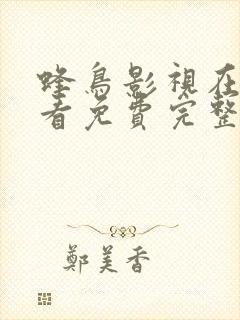 蜂鳥影視在
看免費完整
鄭美香